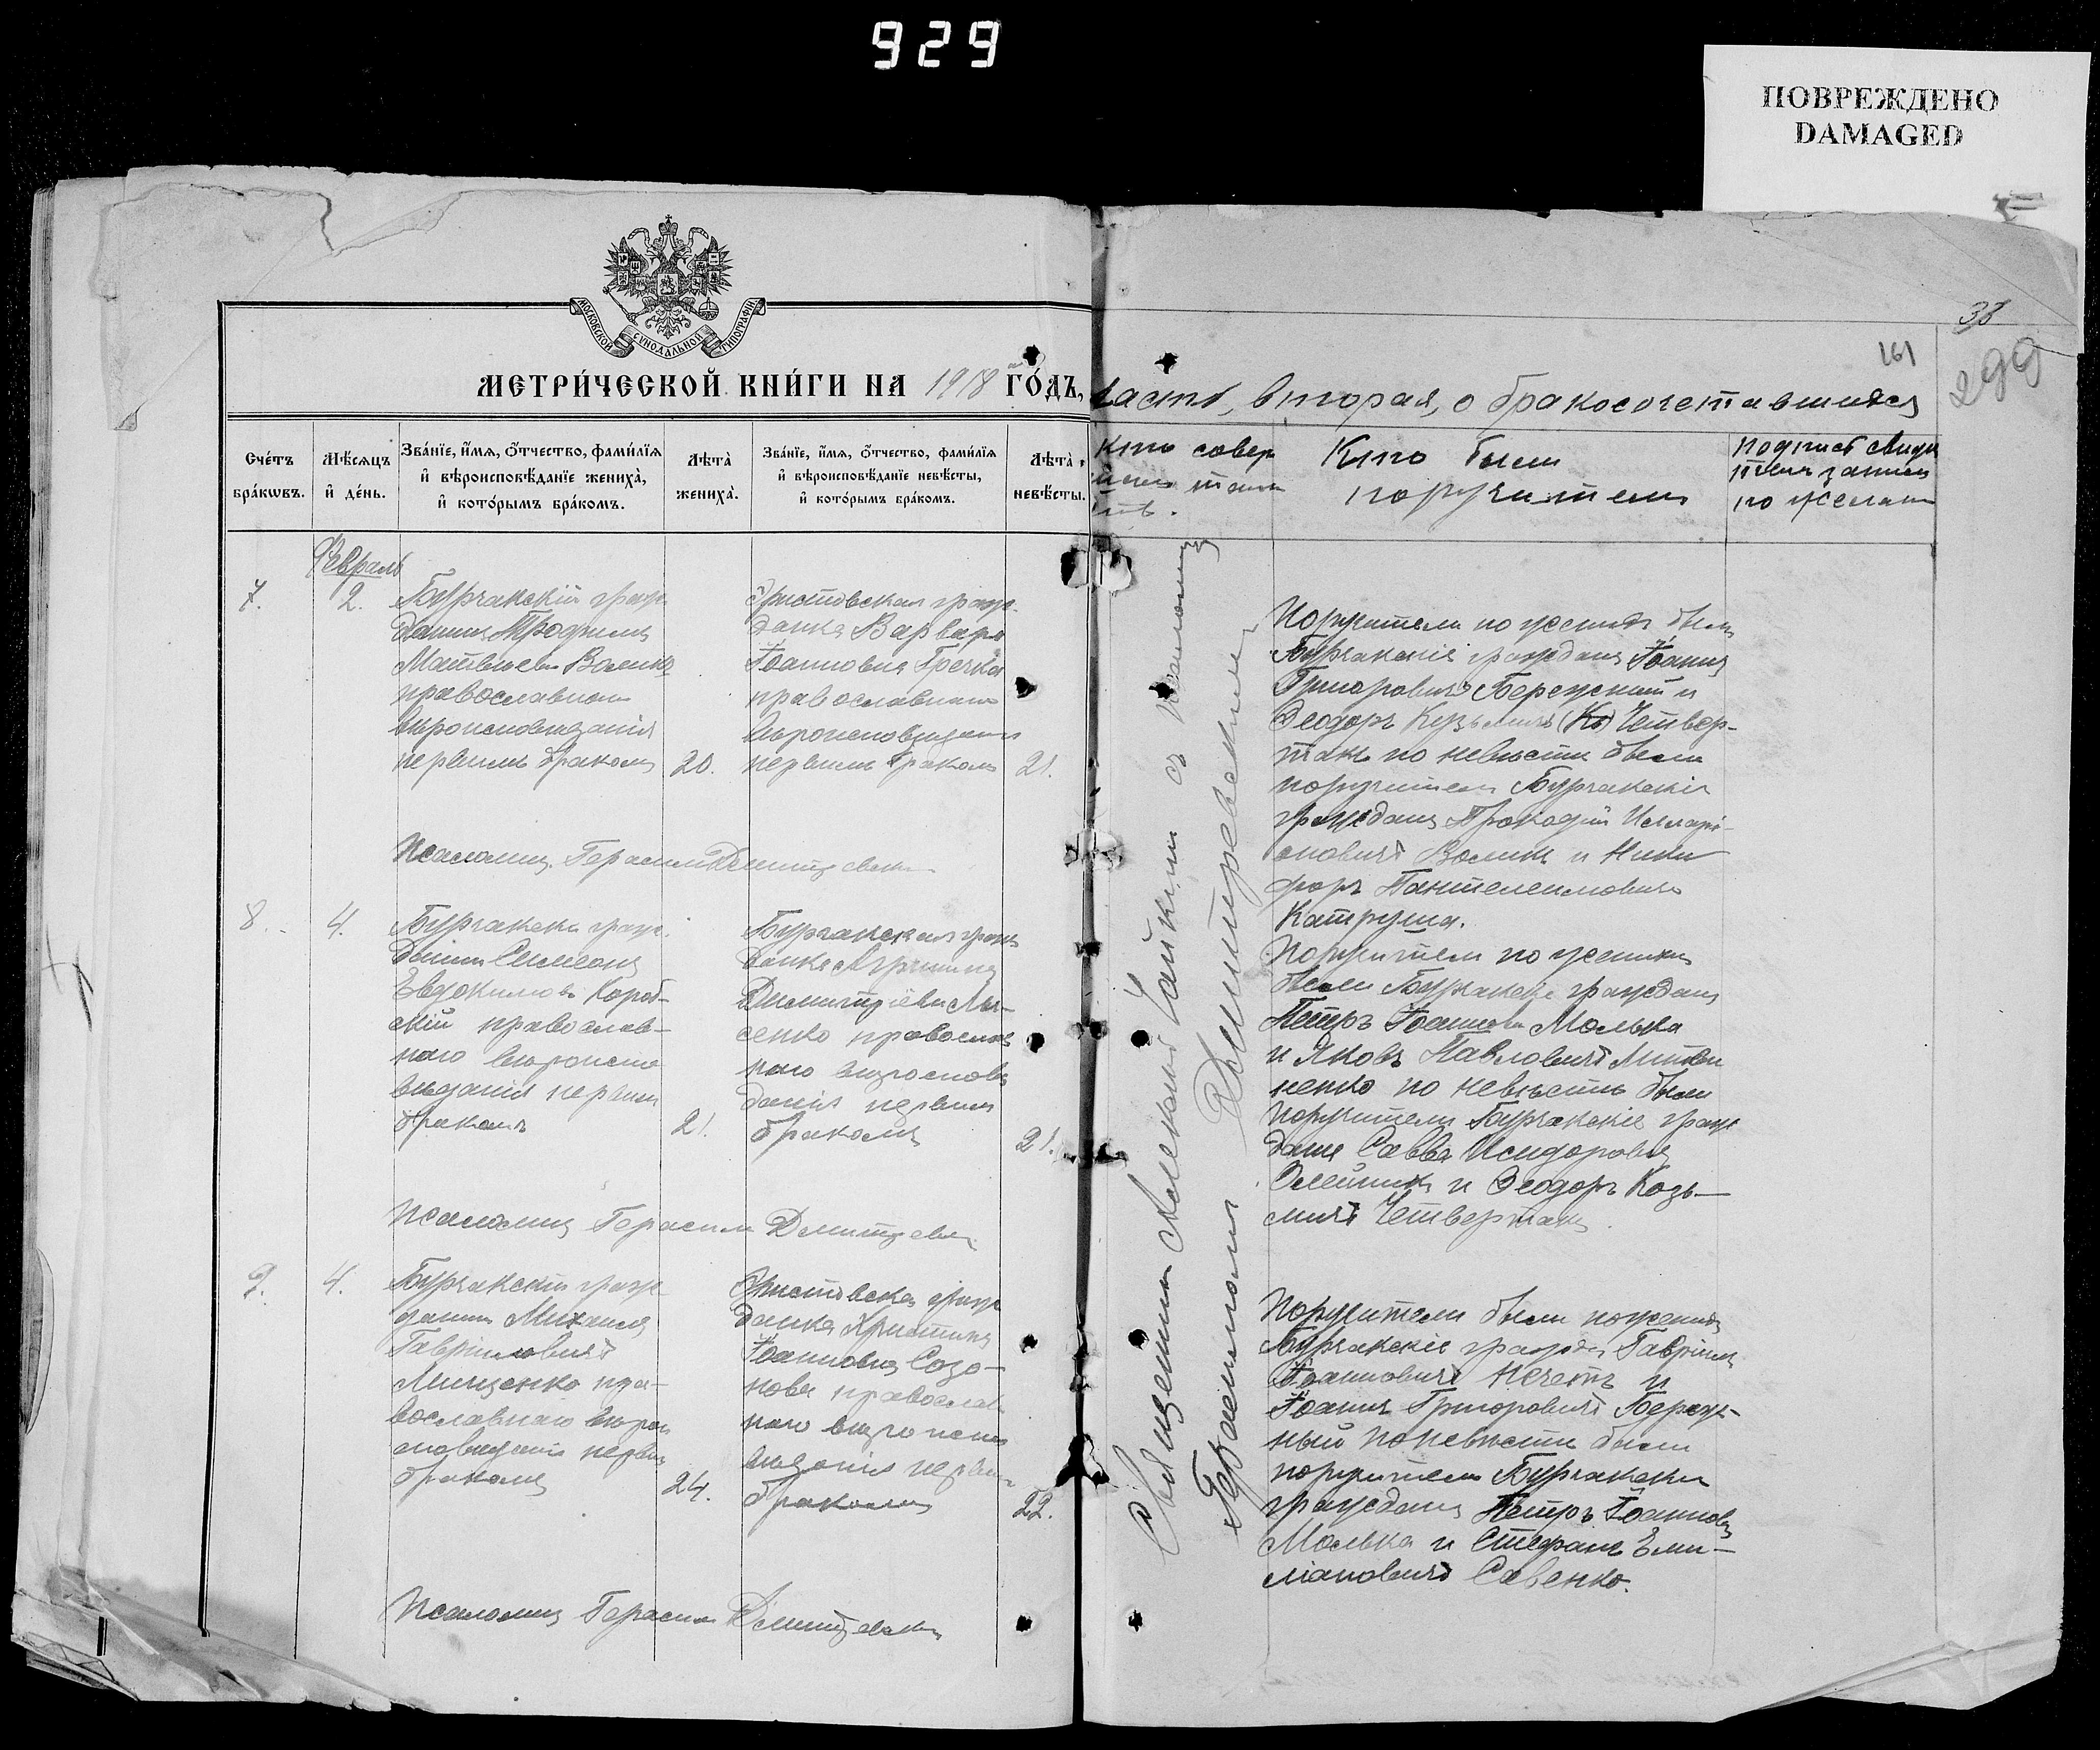 929
ПОВРЕЖДЕНО
DAMAGED
МОСКОВСКОЙ СѴНОДАЛЬНОЙ ТИПОГРАФІИ
38
161
299
МЕТРИ́ЧЕСКОЙ КНИ́ГИ НА 1918 ГО́ДЪ,
часть, вторая, о бракосочетавшихся
Сче́тъ бра́кѡвъ.
Мѣ́сѧцъ и҆ де́нь.
Зва́нїе, и҆́мѧ, ѻ҆́тчество, фами́лїѧ
и҆ вѣроисповѣ́данїе жениха̀,
и҆ кото́рымъ бра́комъ.
Лѣта̀ жениха̀.
Зва́нїе, и҆́мѧ, ѻ҆́тчество, фами́лїѧ
и҆ вѣроисповѣ́данїе невѣ́сты,
и҆ кото́рымъ бра́комъ.
Лѣта̀ невѣ́сты.
Кто совер
Кто были
поручители
подпись свиде
Февраль
7.
2.
Бурчакскій граж
данинъ Трофимъ
Матвѣевъ Воликъ
православнаго
вѣроисповѣданія
первымъ бракомъ
20.
Христовская граж
данка Варвара
Іоанновна Гречка
православнаго
вѣроисповѣданія
первымъ бракомъ
21.
Поручители по женихѣ были
Бурчакскіе граждане Іоаннъ
Григоровичъ Бережний и
Феодоръ Кузьмичъ (Ко) Четвер-
такъ по невѣстѣ были
поручители Бурчакскіе
граждане Прокофій Иллари-
оновичъ Воликъ и Ники
форъ Пантелеимовичъ
Катруша.
Псаломщ. Герасимъ Дмитревскій
8.
4.
Бурчакскій граж.
данинъ Симеонъ
Евдокимовъ Короб-
скій православ-
наго вѣроиспо
вѣданія первым
бракомъ
21.
Бурчакская граж
данка Агрипина
Димитріевна Лы-
сенко православ
наго
данія первым
бракомъ
21.
Поручители по женихѣ
были Бурчакскіе граждане
Петръ Іоанновъ Малька
и Яковъ Павловичъ Литви
ненко по невѣстѣ были
поручители Бурчакскіе граж
дане Савва Исидоровъ
Олейникъ и Феодоръ Козь-
мичъ Четвертакъ.
Псаломщ Герасимъ Дмитревскій
9.
4.
Бурчакскій граж
данинъ Михаилъ
Гавріиловичъ
Мищенко пра-
вославнаго вѣрои
сповѣданія первым
бракомъ
24.
Христовская граж
данка Христина
Іоанновна Созо-
нова православ
наго вѣроиспо
вѣданія первым
бракомъ
22.
Поручители были по женихѣ
Бурчакскіе граждане Гавріилъ
Іоанновичъ Нечетъ и
Іоаннъ Григоровичъ Береж-
ный по невѣстѣ были
поручители Бурчакскіе
граждане Петръ Іоанновъ
Малька и Стефанъ Еми-
ліановичъ Савенко.
Псаломщ Герасим Дмитревскій
Священникъ Алексій Чайкинъ съ псаломщ
Герасимомъ Дмитревскимъ